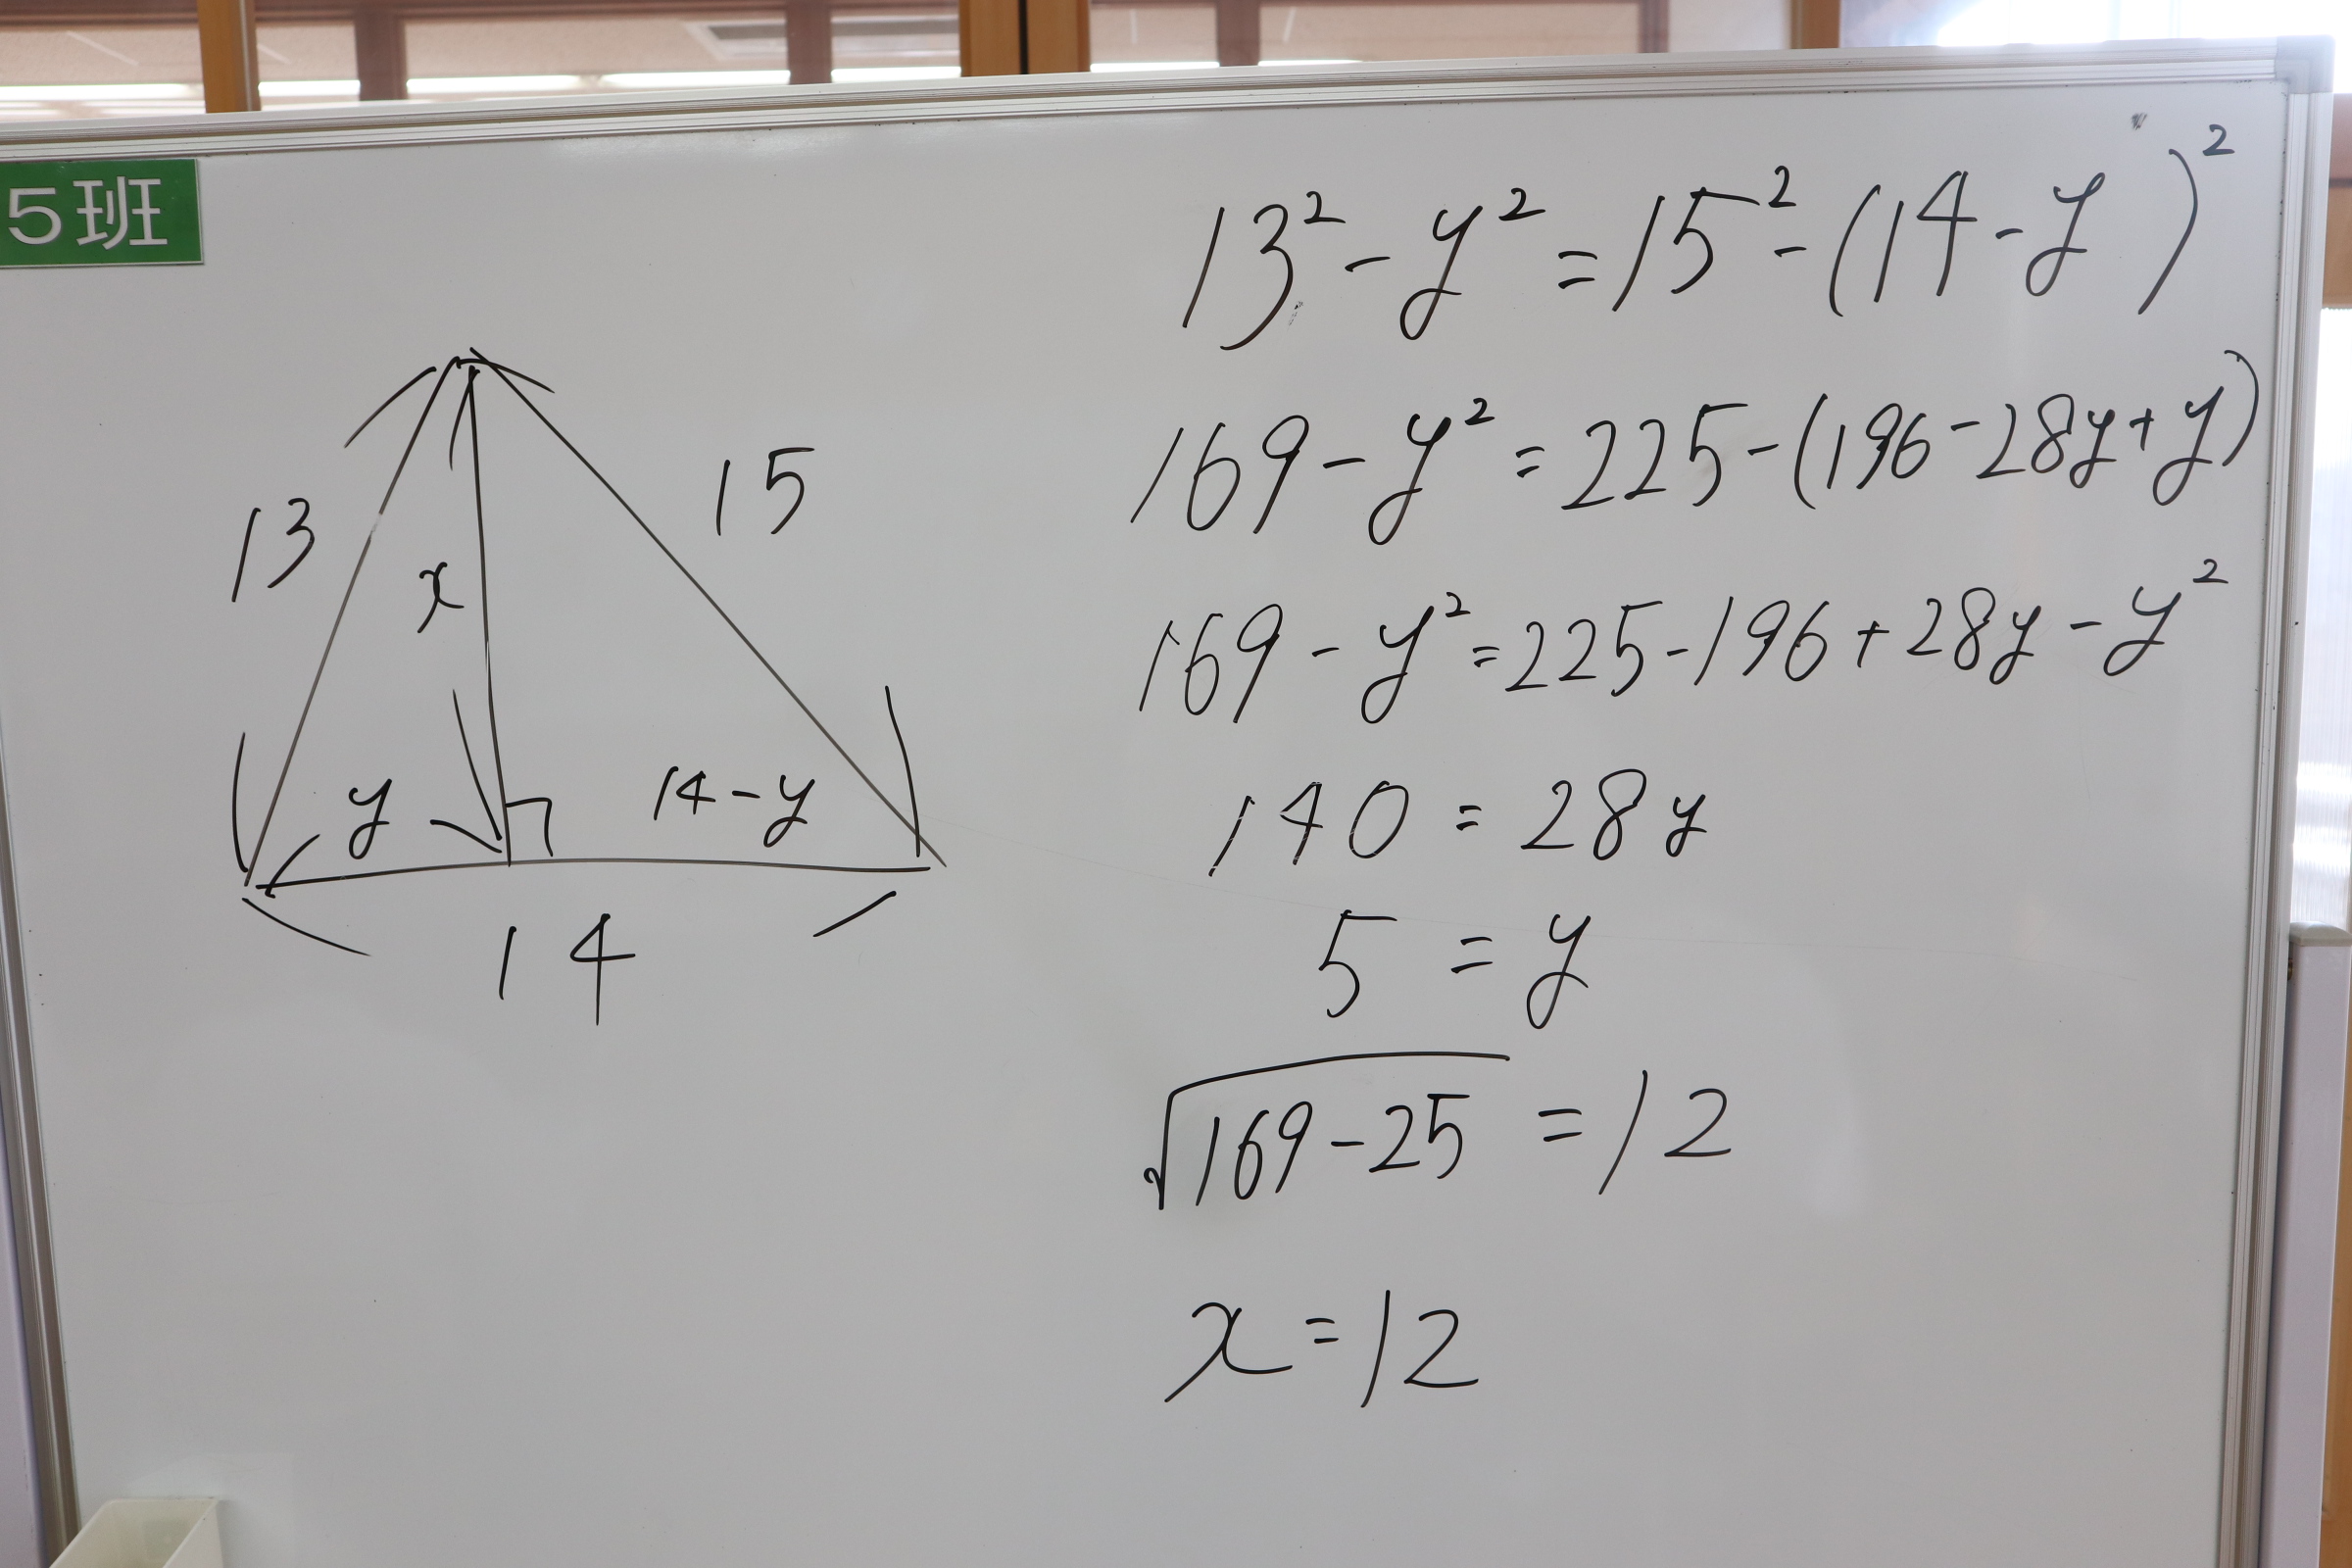 5班
13
15
x
y
14-y
14
13² - y² = 15² - (14 - y)²
169 - y² = 225 - (196 - 28y + y)
169 - y² = 225 - 196 + 28y - y²
140 = 28y
5 = y
√169-25 = 12
x = 12